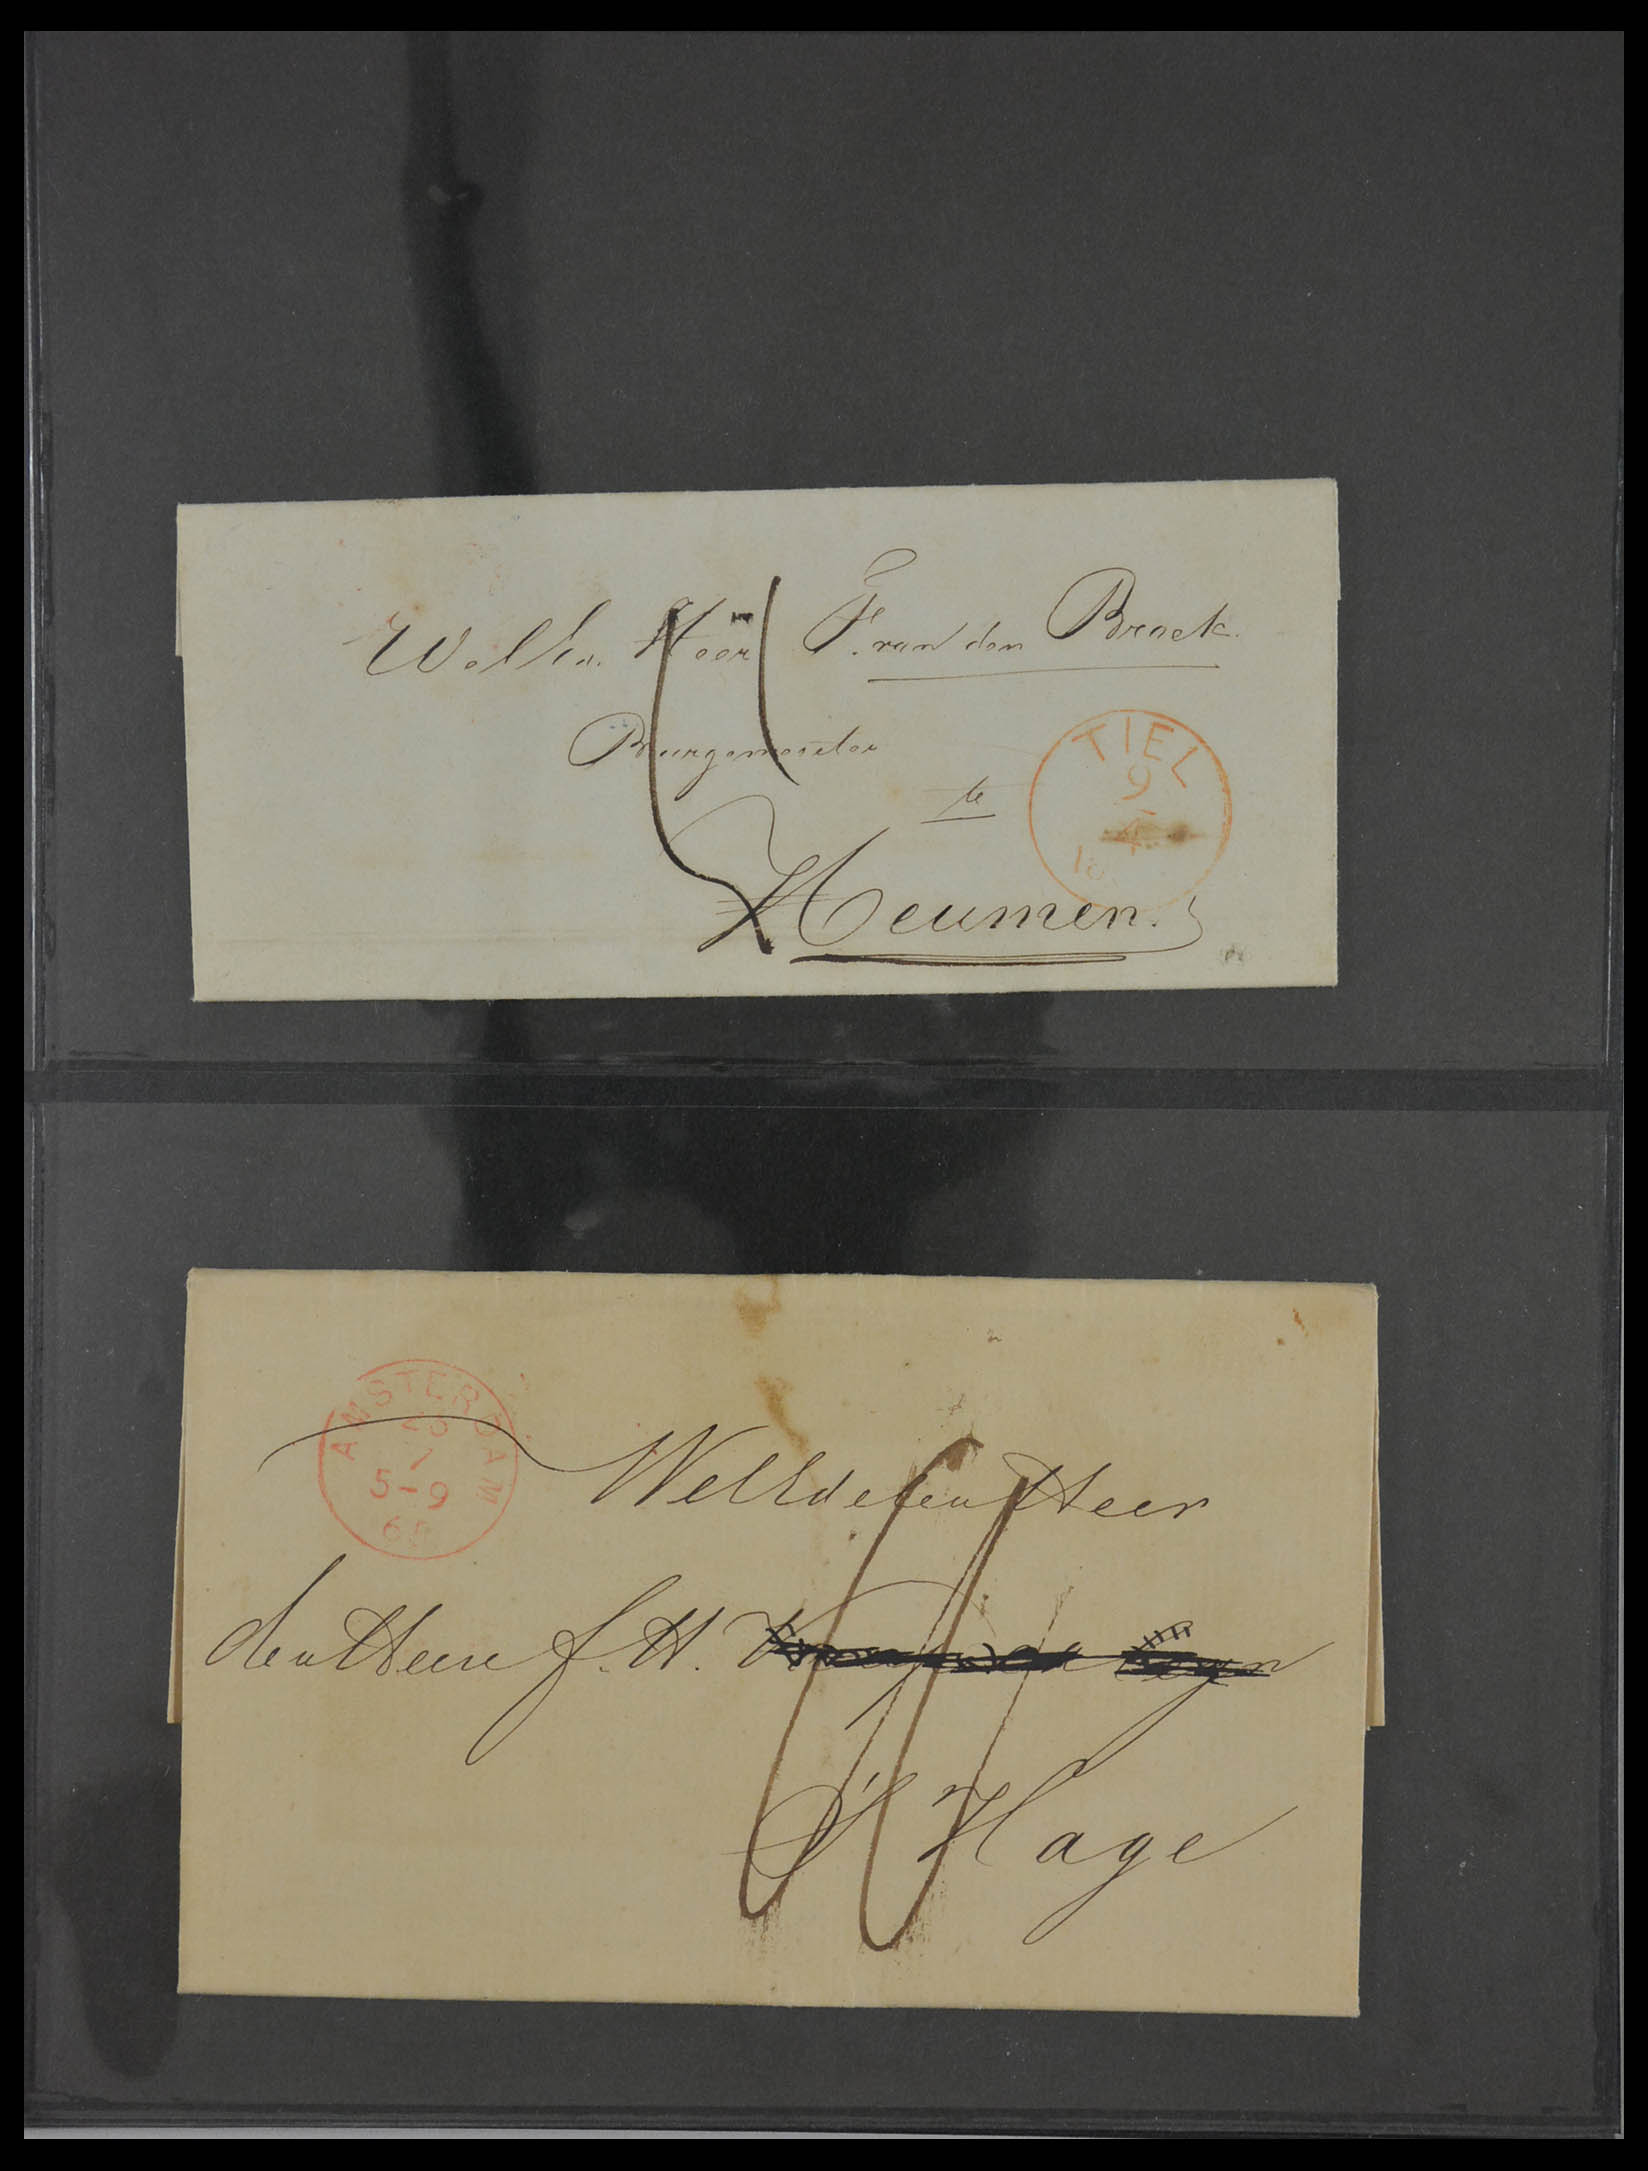 Heer F. van den Broek.
Burgemeester
te
Heumen.
TIEL
9
4
AMSTERDAM
7
5-9
WelEdelen Heer
den Heere J. H.
S' Hage